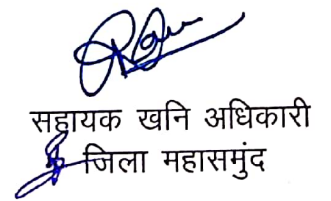 सहायक खनि अधिकारी
जिला महासमुंद